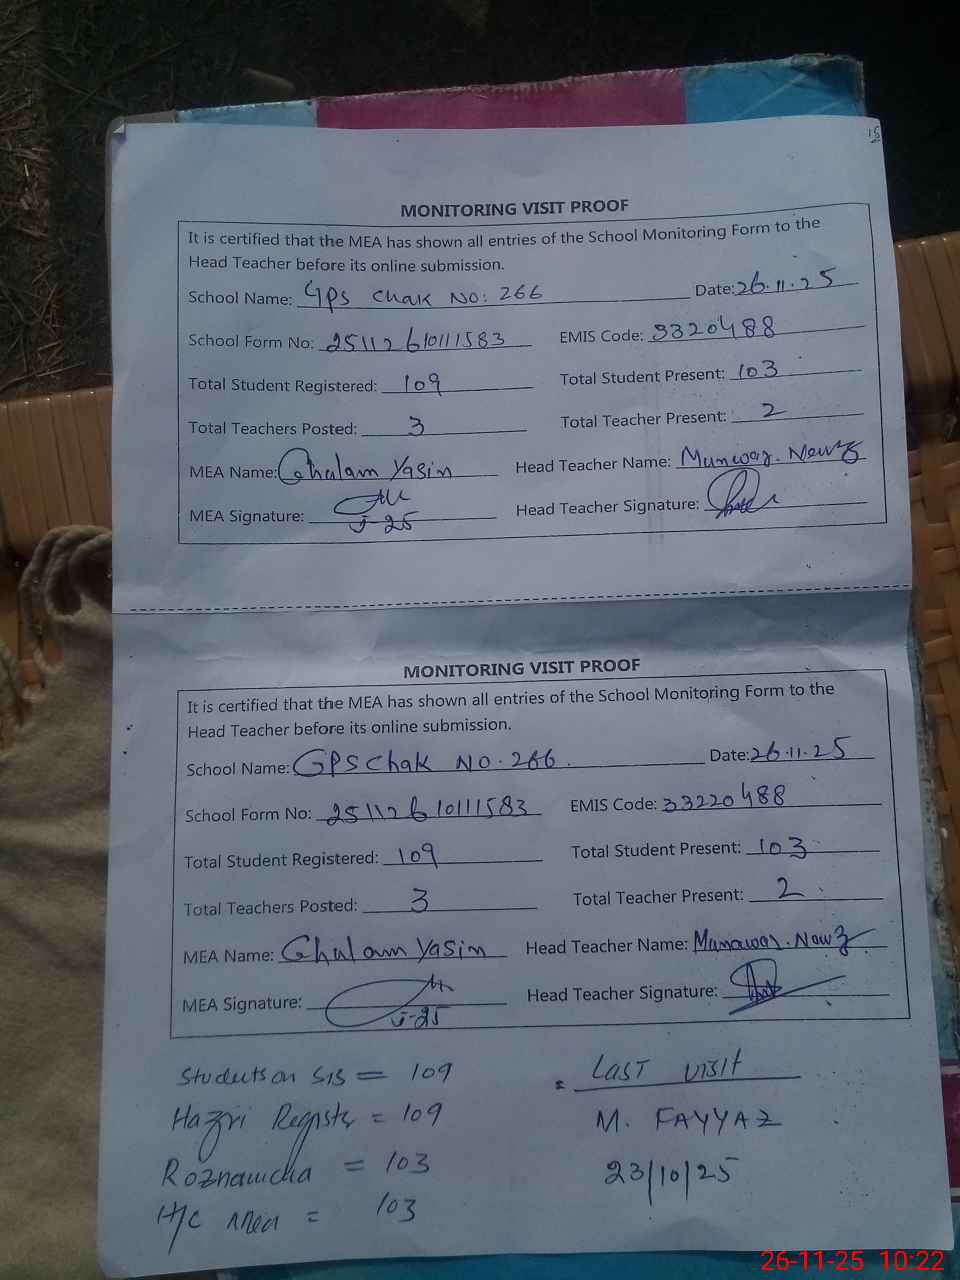 15
MONITORING VISIT PROOF
It is certified that the MEA has shown all entries of the School Monitoring Form to the
Head Teacher before its online submission.
School Name: GPS Chak No: 266 Date: 26.11.25
School Form No: 25112610111583 EMIS Code: 3320488
Total Student Registered: 109 Total Student Present: 103
Total Teachers Posted: 3 Total Teacher Present: 2
MEA Name: Ghulam Yasin Head Teacher Name: Munwar. Nawz
MEA Signature: J-25 Head Teacher Signature:
MONITORING VISIT PROOF
It is certified that the MEA has shown all entries of the School Monitoring Form to the
Head Teacher before its online submission.
School Name: GPS Chak No. 266. Date: 26.11.25
School Form No: 25112610111583 EMIS Code: 33220488
Total Student Registered: 109 Total Student Present: 103
Total Teachers Posted: 3 Total Teacher Present: 2
MEA Name: Ghulam Yasin Head Teacher Name: Munawar. Nawz
MEA Signature: J-25 Head Teacher Signature:
Students on SIS = 109 = Last visit
Hazri Registr = 109 M. FAYYAZ
Roznamcha = 103 23/10/25
H/C MEA = 103
26-11-25 10:22